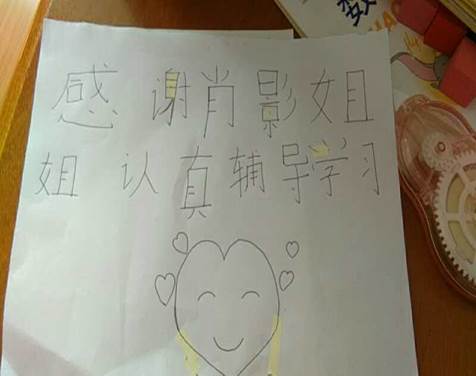 感谢肖影姐
姐认真辅导学习